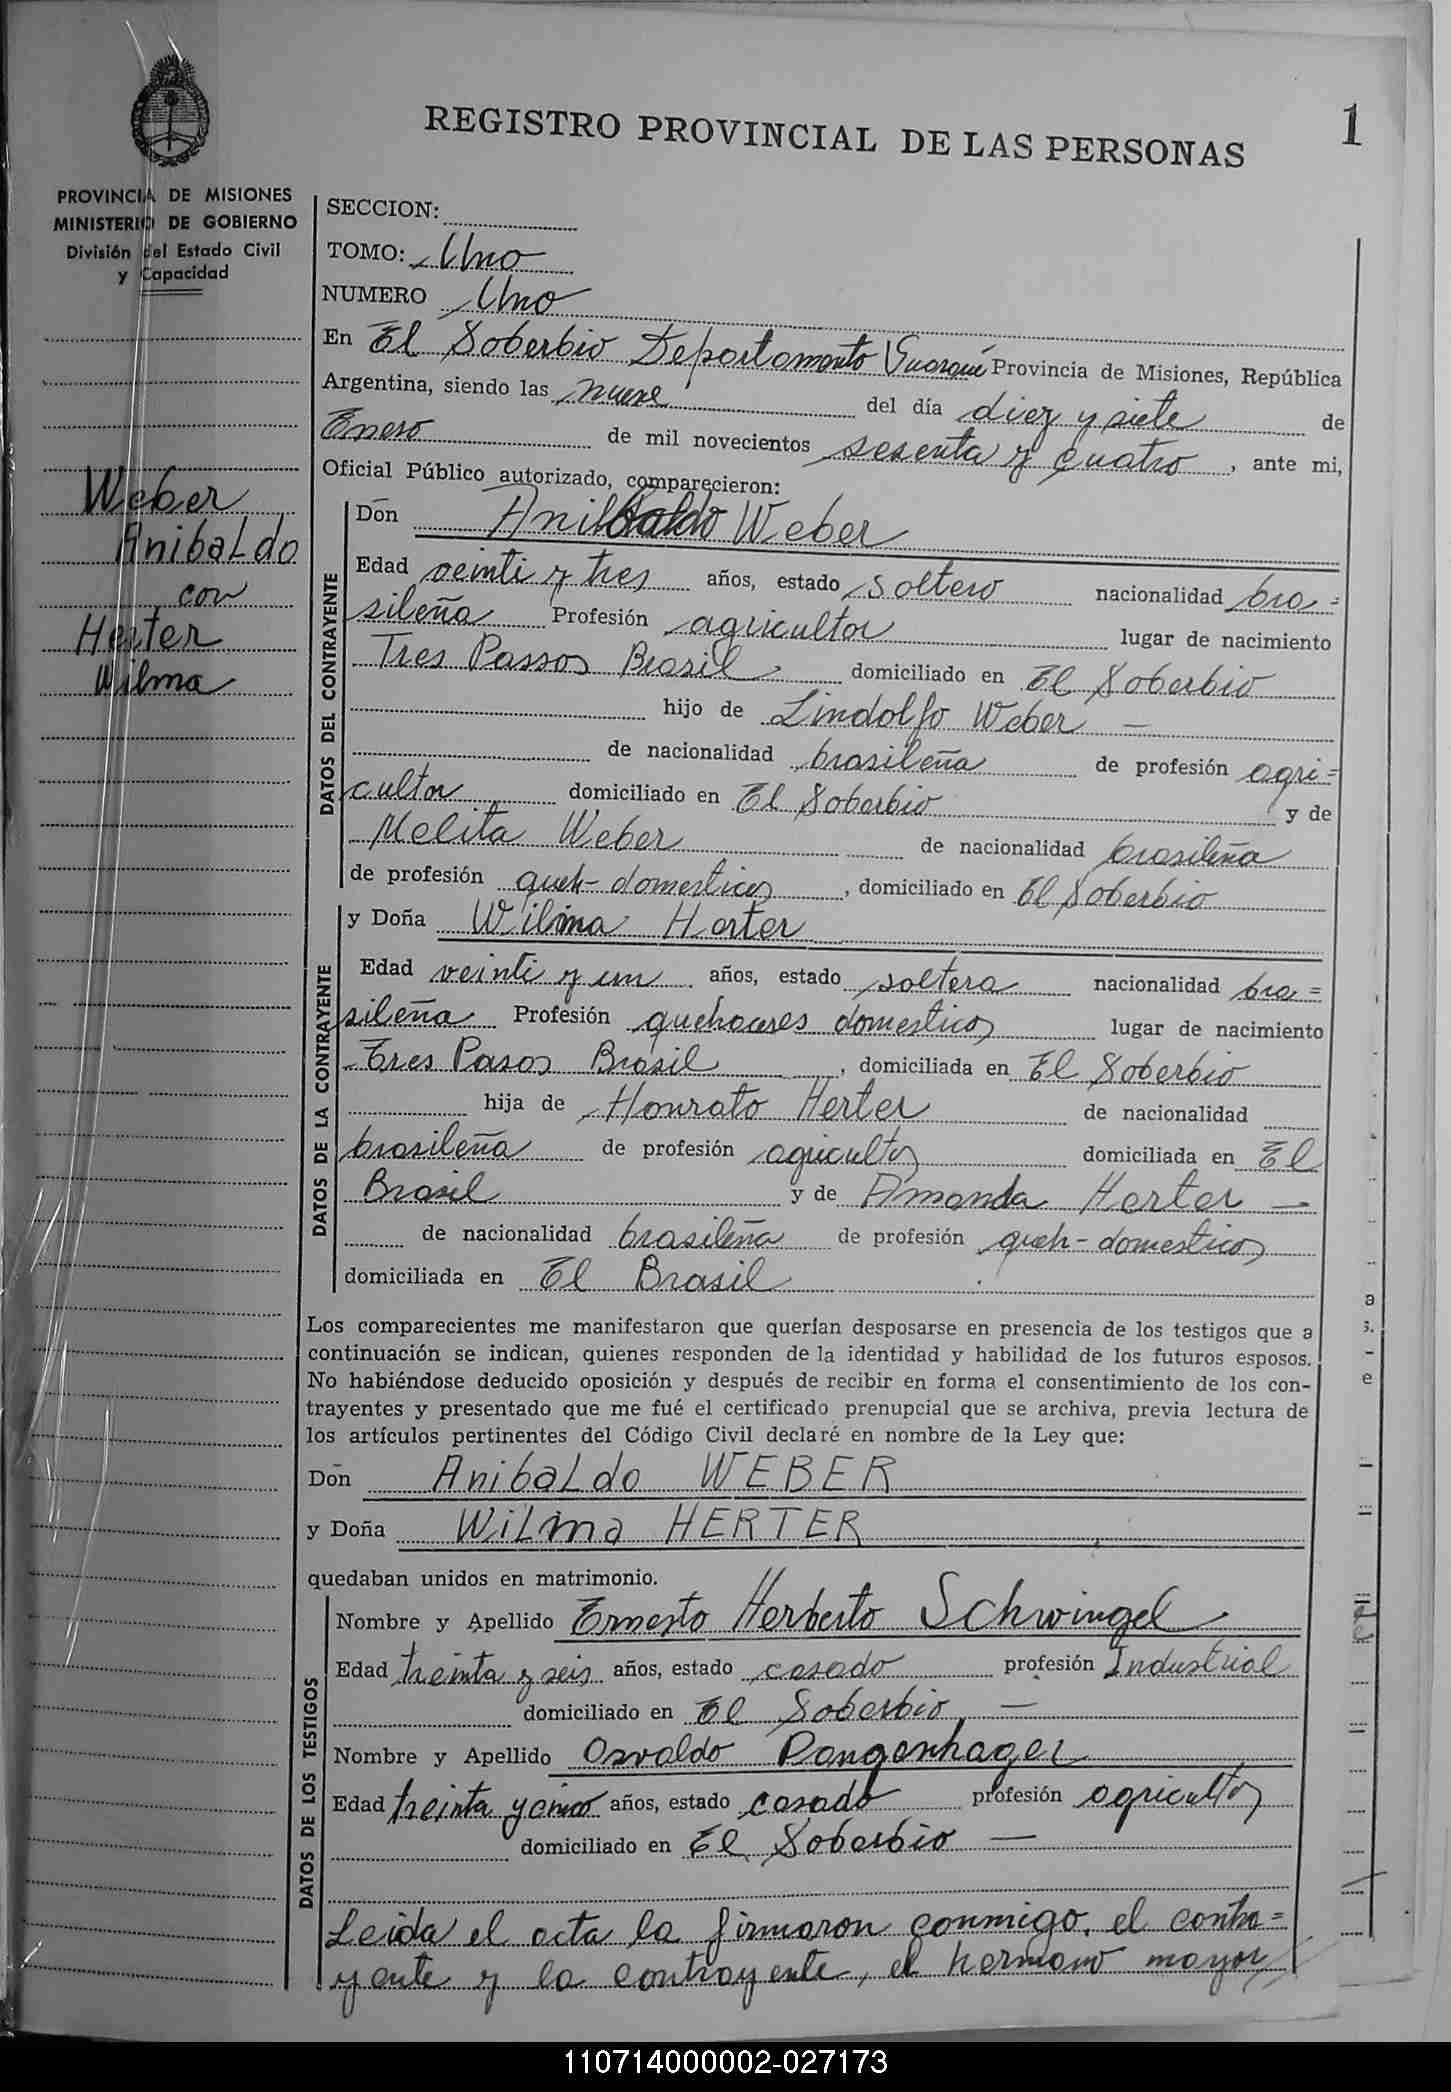 REGISTRO PROVINCIAL DE LAS PERSONAS
1
PROVINCIA DE MISIONES
MINISTERIO DE GOBIERNO
División del Estado Civil
y Capacidad
Weber
Anibaldo
con
Herter
Wilma
SECCION:
TOMO: Uno
NUMERO Uno
En El Soberbio Departamento Guaraní Provincia de Misiones, República
Argentina, siendo las nueve del día diez y siete de
Enero de mil novecientos sesenta y cuatro, ante mi,
Oficial Público autorizado, comparecieron:
DATOS DEL CONTRAYENTE
Don Anibaldo Weber
Edad veinti y tres años, estado soltero nacionalidad bra=
sileña Profesión agricultor lugar de nacimiento
Tres Passos Brasil, domiciliado en El Soberbio
hijo de Lindolfo Weber —
de nacionalidad brasileña de profesión agri=
cultor domiciliado en El Soberbio y de
Melita Weber de nacionalidad brasileña
de profesión queh-domesticos, domiciliado en El Soberbio
DATOS DE LA CONTRAYENTE
y Doña Wilma Herter
Edad veinti y un años, estado soltera nacionalidad bra=
sileña Profesión quehaceres domesticos lugar de nacimiento
Tres Pasos Brasil, domiciliada en El Soberbio
hija de Honrato Herter de nacionalidad
brasileña de profesión agricultor domiciliada en El
Brasil y de Amanda Herter —
de nacionalidad brasileña de profesión queh-domesticos
domiciliada en El Brasil
Los comparecientes me manifestaron que querían desposarse en presencia de los testigos que a
continuación se indican, quienes responden de la identidad y habilidad de los futuros esposos.
No habiéndose deducido oposición y después de recibir en forma el consentimiento de los con-
trayentes y presentado que me fué el certificado prenupcial que se archiva, previa lectura de
los artículos pertinentes del Código Civil declaré en nombre de la Ley que:
Don Anibaldo WEBER
y Doña Wilma HERTER
quedaban unidos en matrimonio.
DATOS DE LOS TESTIGOS
Nombre y Apellido Ernesto Herberto Schwingel
Edad treinta y seis años, estado casado profesión Industrial
domiciliado en El Soberbio —
Nombre y Apellido Osvaldo
Edad treinta y cinco años, estado casado profesión agricultor
domiciliado en El Soberbio —
Leida el acta la firmaron conmigo, el contra=
yente y la contrayente, el hermano mayor
110714000002-027173